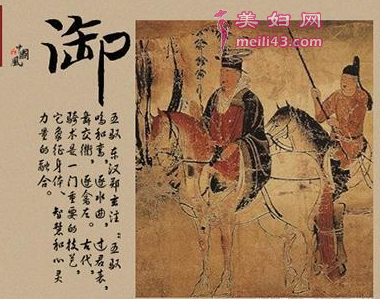 美妇网
meili43.com
御
中國風
五驭 东汉郑玄注：五驭
鸣和鸾，逐水曲，过君表，
舞交衢，逐禽左。古代，
骑术是一门重要的技艺，
它象征身体、智慧和心灵
力量的融合。